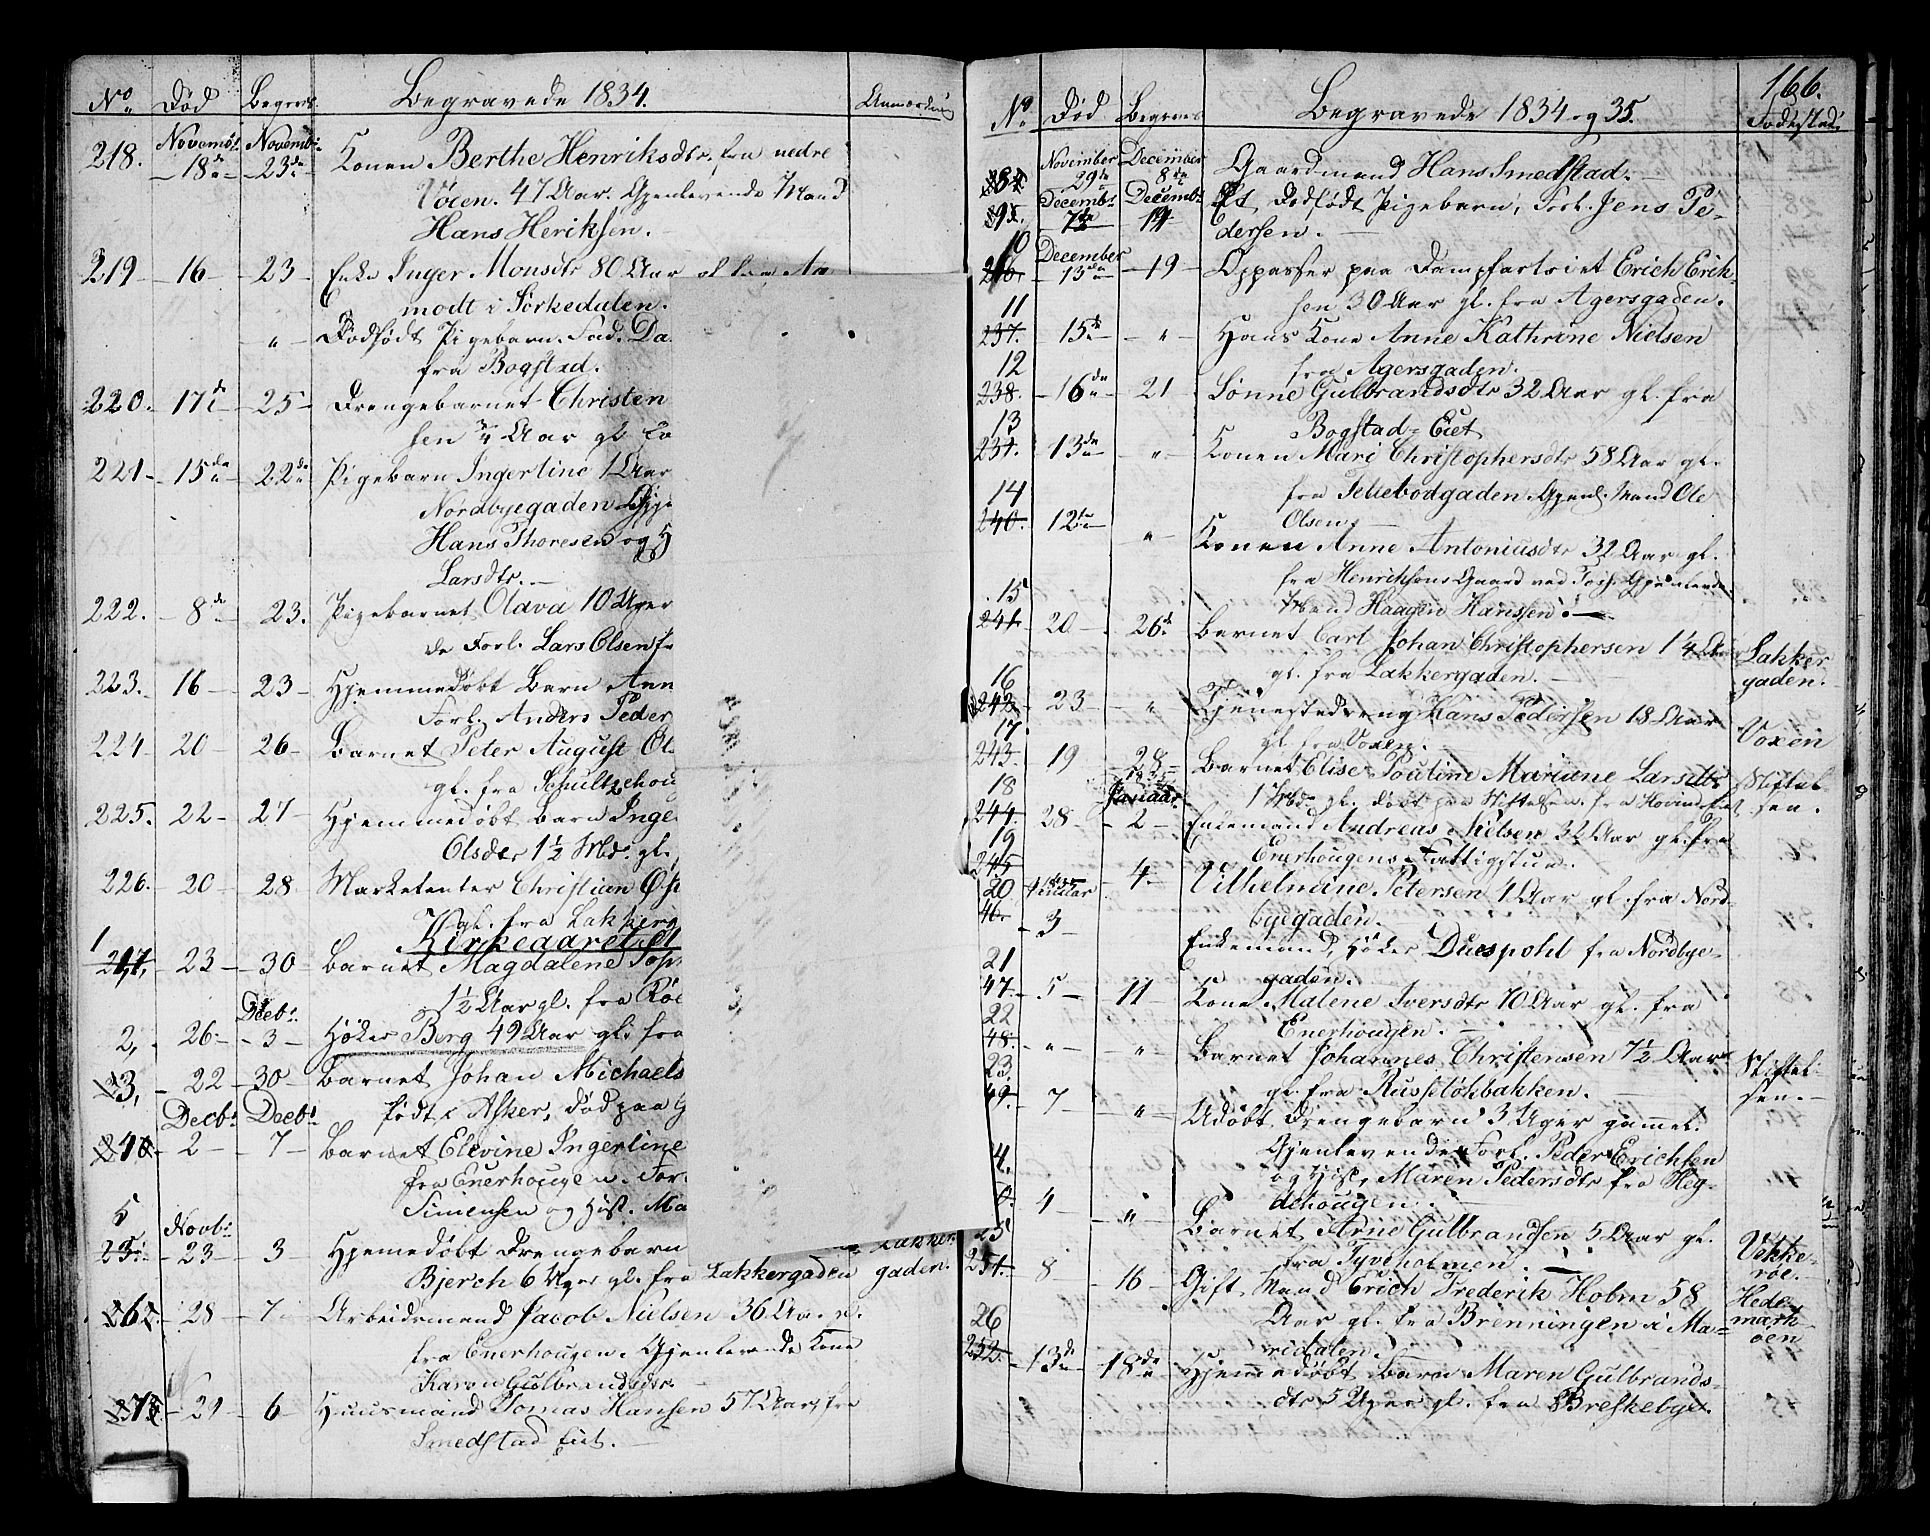 No Død Begrav. Begravede 1834. Anmærkning
218. Novembr 18de Novembr 23de Konen Berthe Henriksdtr, fra nedre
Vøien. 47 Aar. Gjenlevende Mand
Hans Heriksen.
219 16 23 Enke Inger Monsdtr 80 Aar gl fra
modt i Sørkedalen.
" Dødfødt Pigebarn. Fad. Da
fra Bogstad.
220. 17de 25 Drengebarnet Christen
sen 3/4 Aar gl.
221 15de 22de Pigebarn Ingertine 1 Aar
Nordbyegaden
Hans Thoresen og H
Larsdtr.
222. 8de 23. Pigebarnet Olava 10 Uger
de Forl. Lars Olsen fr
223. 16 23 Hjemmedøbt Barn Ann
Forl. Anders Peder
224 20 26 Barnet Peter August Ol
gl. fra Schultzehou
225. 22 27 Hjemmedøbt Barn Inge
Olsdtr 1 1/2 Md. gl.
226. 20 28 Marketenter Christian Øst
gl. fra Lakkerg
Kirkeaaret
1 23 30 Barnet Magdalene Sop
1 1/2 Aar gl. fra Røe
2, 26 Decbr. 3 Høker Berg 49 Aar gl. fra
3, 22 30 Barnet Johan Michaels
født i Asker, død paa G
4 Decbr. 2 Decbr. 7 Barnet Elevine Ingerline
fra Enerhougen. For
Simensen og Hust. Ma
5 Novbr. 23 3 Hjemedøbt Drengebarn
Bjerch 6 Uger gl. fra Lakkergaden Lakkergaden.
6 28 7 Arbeidsmand Jacob Nielsen 36 Aar gl.
fra Enerhougen. Gjenlevende Kone
Karen Gulbrandsdtr
7 29 6 Huusmand Tomas Hansen 57 Aar fra
Smedstad Eiet.
166.
No Død Begravet Begravede 1834 og 35. Fødested
8 November 29de December 8de Gaardmand Hans Smedstad.
9 Decembr 7de Decembr 14 Et Dødfødt Pigebarn, Forl. Jens Pe-
dersen.
10 December 13de 19 Oppasser paa Dampfartøiet Erich Erik-
sen 30 Aar gl. fra Agersgaden.
11 237. 15de " Hans Kone Anne Kathrine Nielsen
fra Agersgaden.
12 238. 16de 21 Sønne Gulbrandsdtr 32 Aar gl. fra
Bogstad-Eiet
13 13de " Konen Mari Christophersdtr 58 Aar gl.
fra Pellebodgaden Gjenl. Mand Ole
Olsen.
14 240. 12te " Konen Anne Antoniusdtr 32 Aar gl.
fra Henriksens Gaard ved Gjenlevende
Mand Haagen Hanssen.
15 241 20 26de Barnet Carl Johan Christophersen 1 1/4 Aar
gl. fra Lakkergaden. Lakkergaden.
16 242 23 " Tjenestedreng Hans Pedersen 18 Aar
gl. fra Voxen. Voxen
17. 243. 19 28 Barnet Elise Pouline Mariane Larsdtr
1 Md. gl. født paa Stiftelsen. fra Stiftelsen.
18 244 28 1835 Januar 2 Enkemand Andreas Nielsen 32 Aar gl. fra
Enerhougens Fattigstue.
19 245 4 Vilhelmine Petersen 1 Aar gl. fra Nord-
byegaden.
20 46. Januar 3 Enkemand, Høker Duespohl fra Nordbye-
gaden.
21 47. 5 11 Kone Malene Iversdtr 70 Aar gl. fra
Enerhougen.
22 48. " " Barnet Johannes Christensen 7 1/2 Aar
gl. fra Russeløkbakken. Stiftelsen.
23 49. 7 " Udøbt Drengebarn 3 Uger gammel.
Gjenlevende Forl. Peder Erichsen
og Hust, Maren Pedersdtr fra Heg-
dehougen.
4. 0. 4 " Barnet Arne Gulbrandsen 5 Aar gl.
fra Tyveholmen. Vekkerøe.
25 251. 8 16 Gift Mand Erich Frederik Holm 58
Aar gl. fra Brenningen i Ma-
ridalen. Hedemarken
26 252. 13de 18de Hjemmedøbt Barn Maren Gulbrands-
dtr 5 Uger gl. fra Breskebyet.